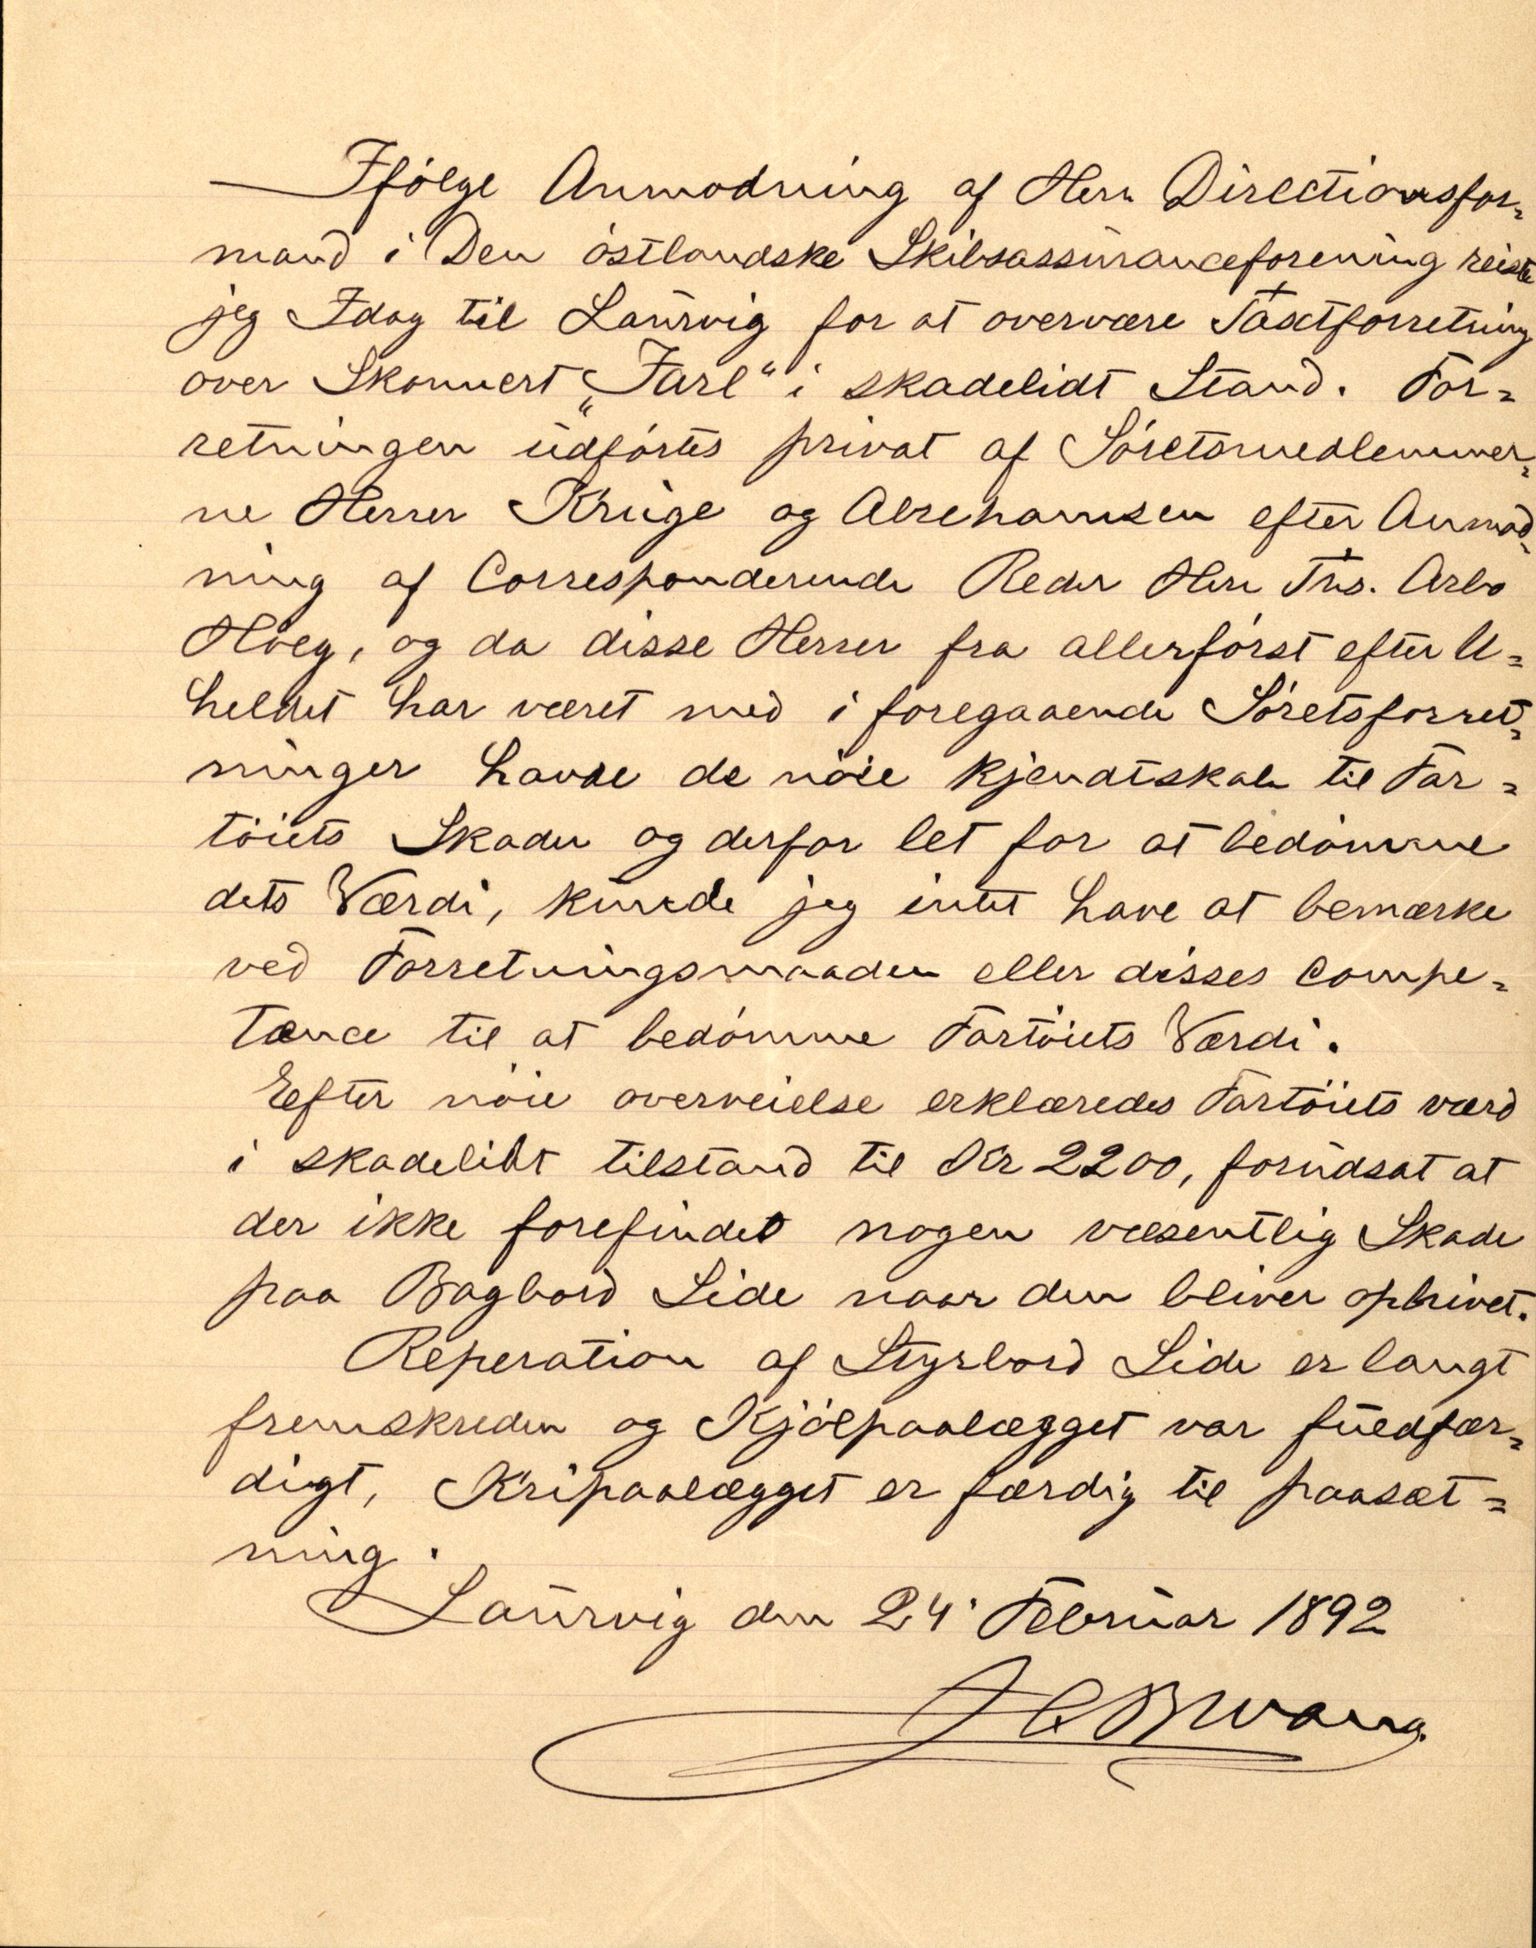 Ifølge Anmodning af Herr Directionsfor=
mand i Den østlandske Skibsassuranceforening reiste
jeg Idag til Laurvig for at overvære Taxtforretning
over Skonnert „Jarl“ i skadelidt Stand. For=
retningen udførtes privat af Søretsmedlemmer=
ne Herrer Kruge og Abrehamsen efter Anmod=
ning af Corresponderende Reder Herr Ths. Arbo
Høeg, og da disse Herrer fra allerførst efter U=
heldet har været med i foregaaende Søretsforret=
ninger havde de nøie kjendtskab til Far=
tøiets Skader og derfor let for at bedømme
dets Værdi, kunde jeg intet have at bemærke
ved Forretningsmaaden eller disses compe=
tance til at bedømme Fartøiets Værdi.
Eefter nøie overveielse erklæredes Fartøiets værd
i skadelidt tilstand til Kr 2200, forudsat at
der ikke forefindet nogen væsentlig Skade
paa Bagbord Side naar den bliver ophivet.
Reperation af Styrbord Side er langt
fremskreden og Kjølpaalægget var fuldfær=
digt, Kripaalægget er færdig til paasæt=
ning.
Laurvig den 24' Februar 1892